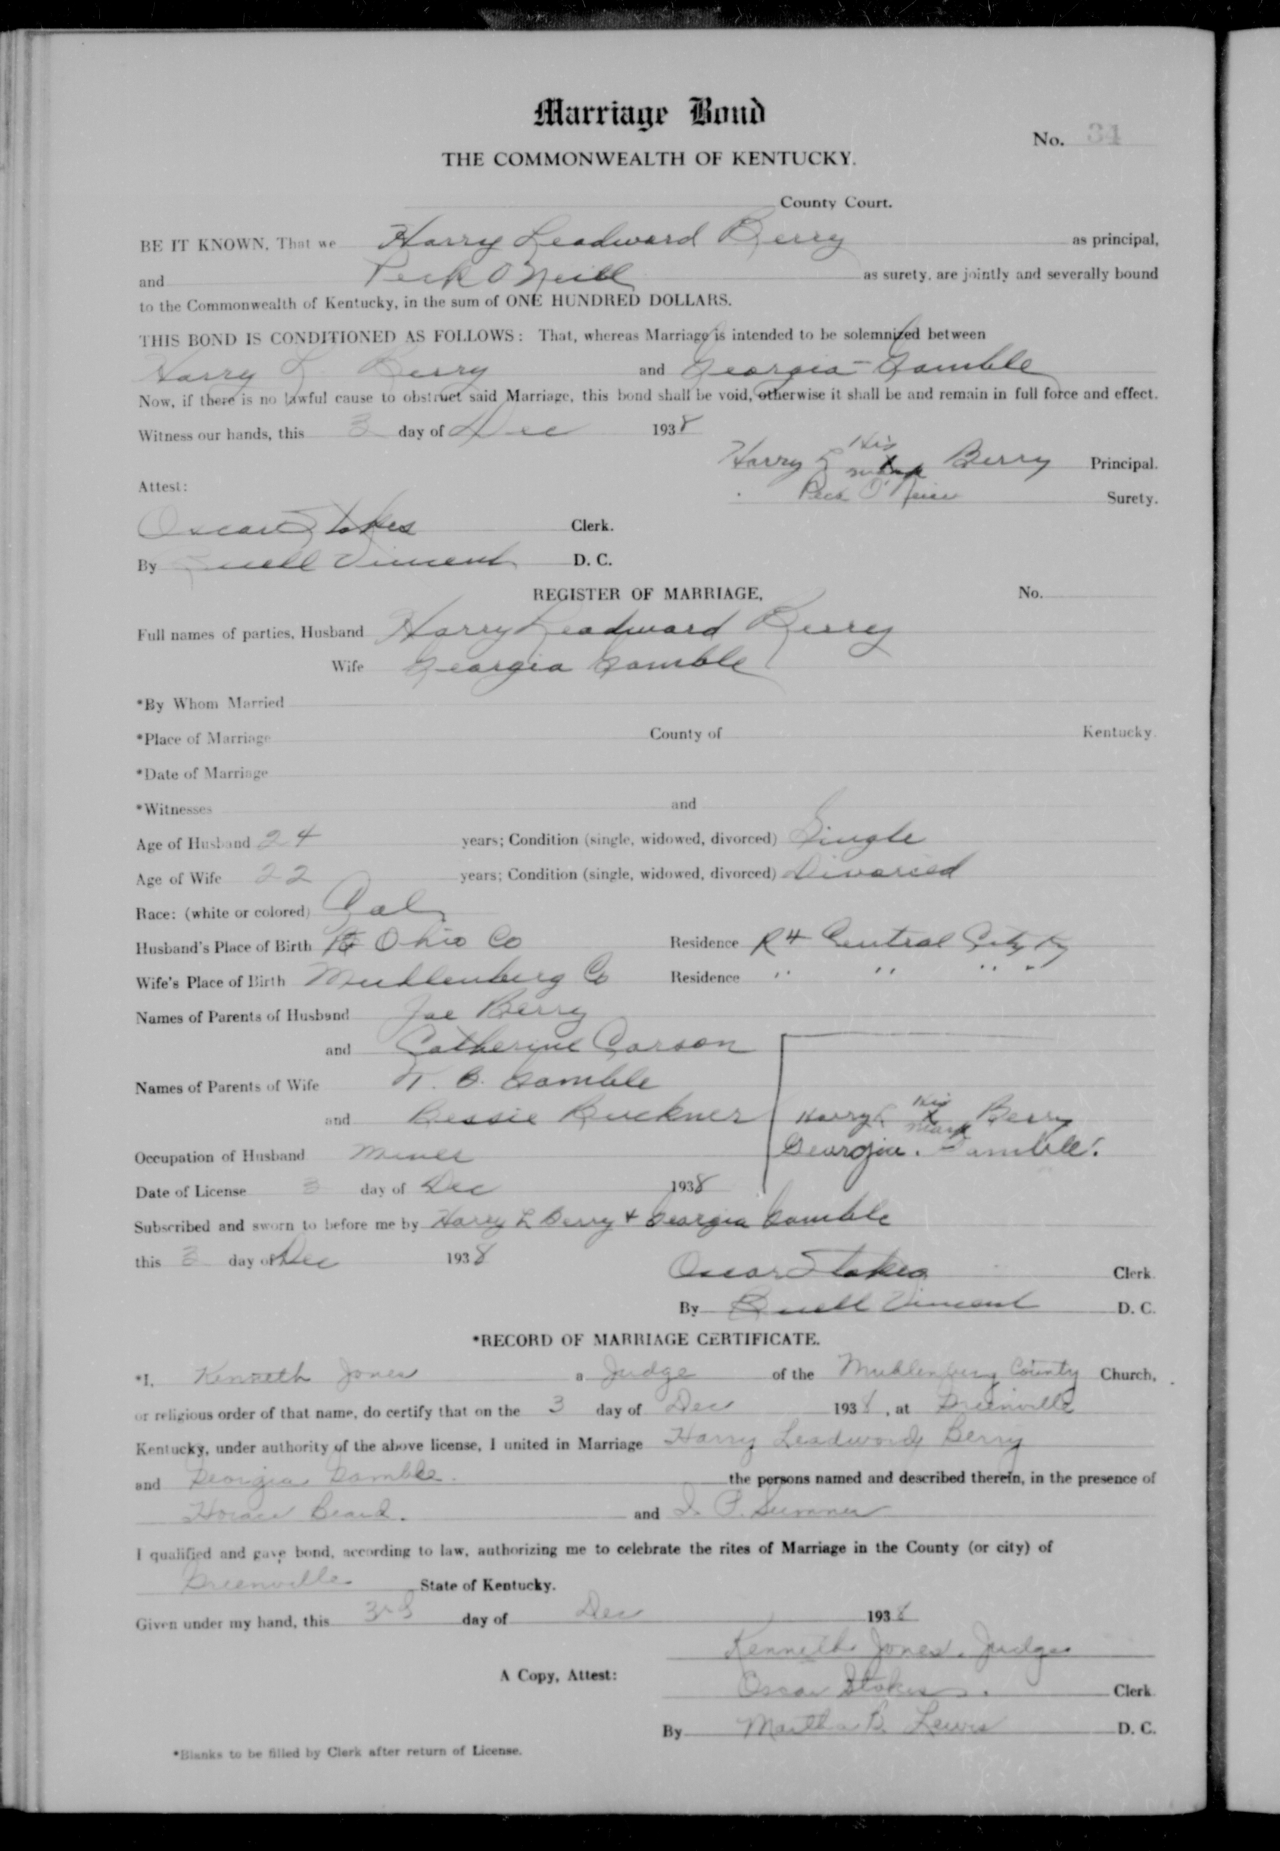 Marriage Bond
No. 34
THE COMMONWEALTH OF KENTUCKY.
County Court.
BE IT KNOWN, That we Harry Leadward Berry as principal,
and Peck O'Neill as surety, are jointly and severally bound
to the Commonwealth of Kentucky, in the sum of ONE HUNDRED DOLLARS.
THIS BOND IS CONDITIONED AS FOLLOWS: That, whereas Marriage is intended to be solemnized between
Harry L Berry and Georgia Gamble
Now, if there is no lawful cause to obstruct said Marriage, this bond shall be void, otherwise it shall be and remain in full force and effect.
Witness our hands, this 3 day of Dec 1938
Harry L His X mark Berry Principal.
Attest: Peck O'Neill Surety.
Oscar Stokes Clerk.
By Buell Vincent D. C.
REGISTER OF MARRIAGE, No.
Full names of parties, Husband Harry Leadward Berry
Wife Georgia Gamble
*By Whom Married
*Place of Marriage County of Kentucky.
*Date of Marriage
*Witnesses and
Age of Husband 24 years; Condition (single, widowed, divorced) Single
Age of Wife 22 years; Condition (single, widowed, divorced) Divorced
Race: (white or colored) Col
Husband's Place of Birth Ohio Co Residence R4 Central City Ky
Wife's Place of Birth Muhlenberg Co Residence " " " "
Names of Parents of Husband Joe Berry
and Catherine Carson
Names of Parents of Wife B. Gamble
and Bessie Buckner Harry L His X mark Berry
Occupation of Husband Miner Georgia Gamble
Date of License 3 day of Dec 1938
Subscribed and sworn to before me by Harry L Berry + Georgia Gamble
this 3 day of Dec 1938
Oscar Stokes Clerk.
By Buell Vincent D. C.
*RECORD OF MARRIAGE CERTIFICATE.
*I, Kenneth Jones a Judge of the Muhlenburg County Church,
or religious order of that name, do certify that on the 3 day of Dec 1938, at Greenville
Kentucky, under authority of the above license, I united in Marriage Harry Leadwordy Berry
and Georgia Gamble. the persons named and described therein, in the presence of
Horace Beard. and P. Sumner
I qualified and gave bond, according to law, authorizing me to celebrate the rites of Marriage in the County (or city) of
Greenville State of Kentucky.
Given under my hand, this 3rd day of Dec 1938
Kenneth Jones, Judge
A Copy, Attest: Oscar Stokes. Clerk
By Martha B. Lewis D. C.
*Blanks to be filled by Clerk after return of License.